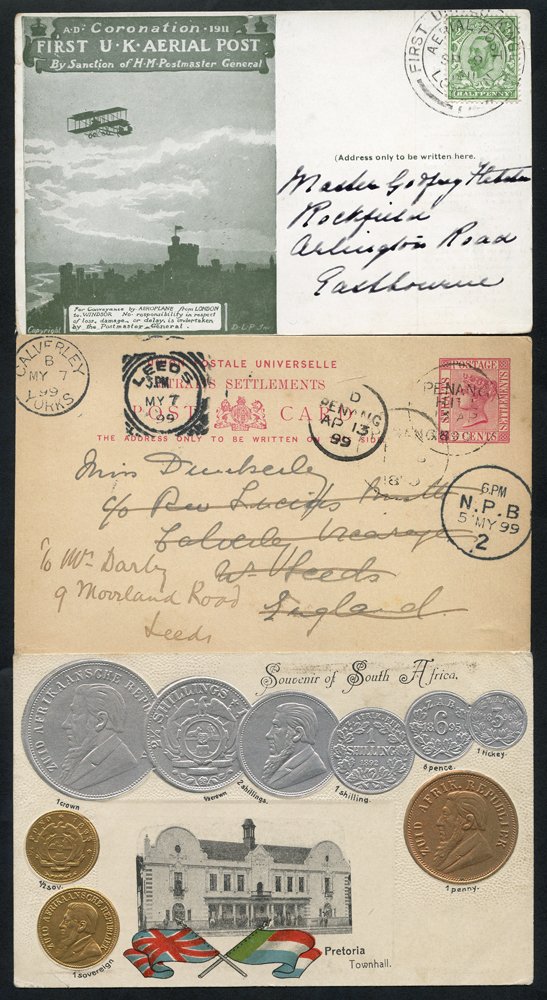 A·D· Coronation · 1911
FIRST U·K·AERIAL POST
By Sanction of H·M·Postmaster General
FIRST
AERIAL POST
HALFPENNY
(Address only to be written here.
Master Godfrey
Rockfield
Arlington Road
Eastbourne
For Conveyance by AEROPLANE from LONDON
to WINDSOR No responsibility in respect
of loss, damage, or delay, is undertaken
by the Postmaster General
Copyright
CALVERLEY
B
MY 7
99
YORKS
LEEDS
3PM
MY 7
99
POSTALE UNIVERSELLE
STRAITS SETTLEMENTS
POST CARD
THE ADDRESS ONLY TO BE WRITTEN ON SIDE
D
PENANG
AP 13
99
PENANG
POSTAGE
CENTS
6.PM
N.P.B
5 MY 99
2
Miss Dunkerley
c/o Rev Lucius Smith
Vicarage
Nr Leeds
England
To Mrs Darby
9 Moorland Road
Leeds
Souvenir of South Africa.
ZUID AFRIKAANSCHE REPUBLIEK
2½ SHILLINGS
1
SHILLING
1892
Z.A.R.
6
1895
3
1 crown
½ crown
2 shillings.
1 shilling.
6 pence.
1 tickey.
½ sov.
1 sovereign
ZUID AFRIK. REPUBLIEK
1 penny.
Pretoria
Townhall.